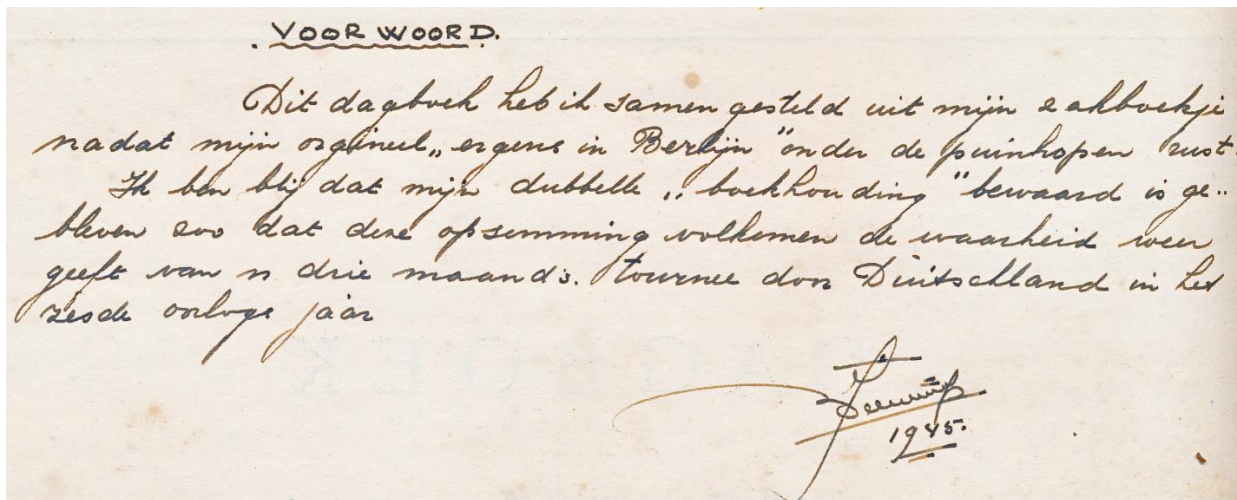 . VOORWOORD.
Dit dagboek heb ik samen gesteld uit mijn zakboekje
nadat mijn orgineel „ergens in Berlijn" onder de puinhopen rust.
Ik ben blij dat mijn dubbelle „boekhouding" bewaard is ge„
bleven zoo dat deze opsomming volkomen de waarheid weer
geeft van n drie maand's. tournee door Duitschland in het
zesde oorlogs jaar
1945.